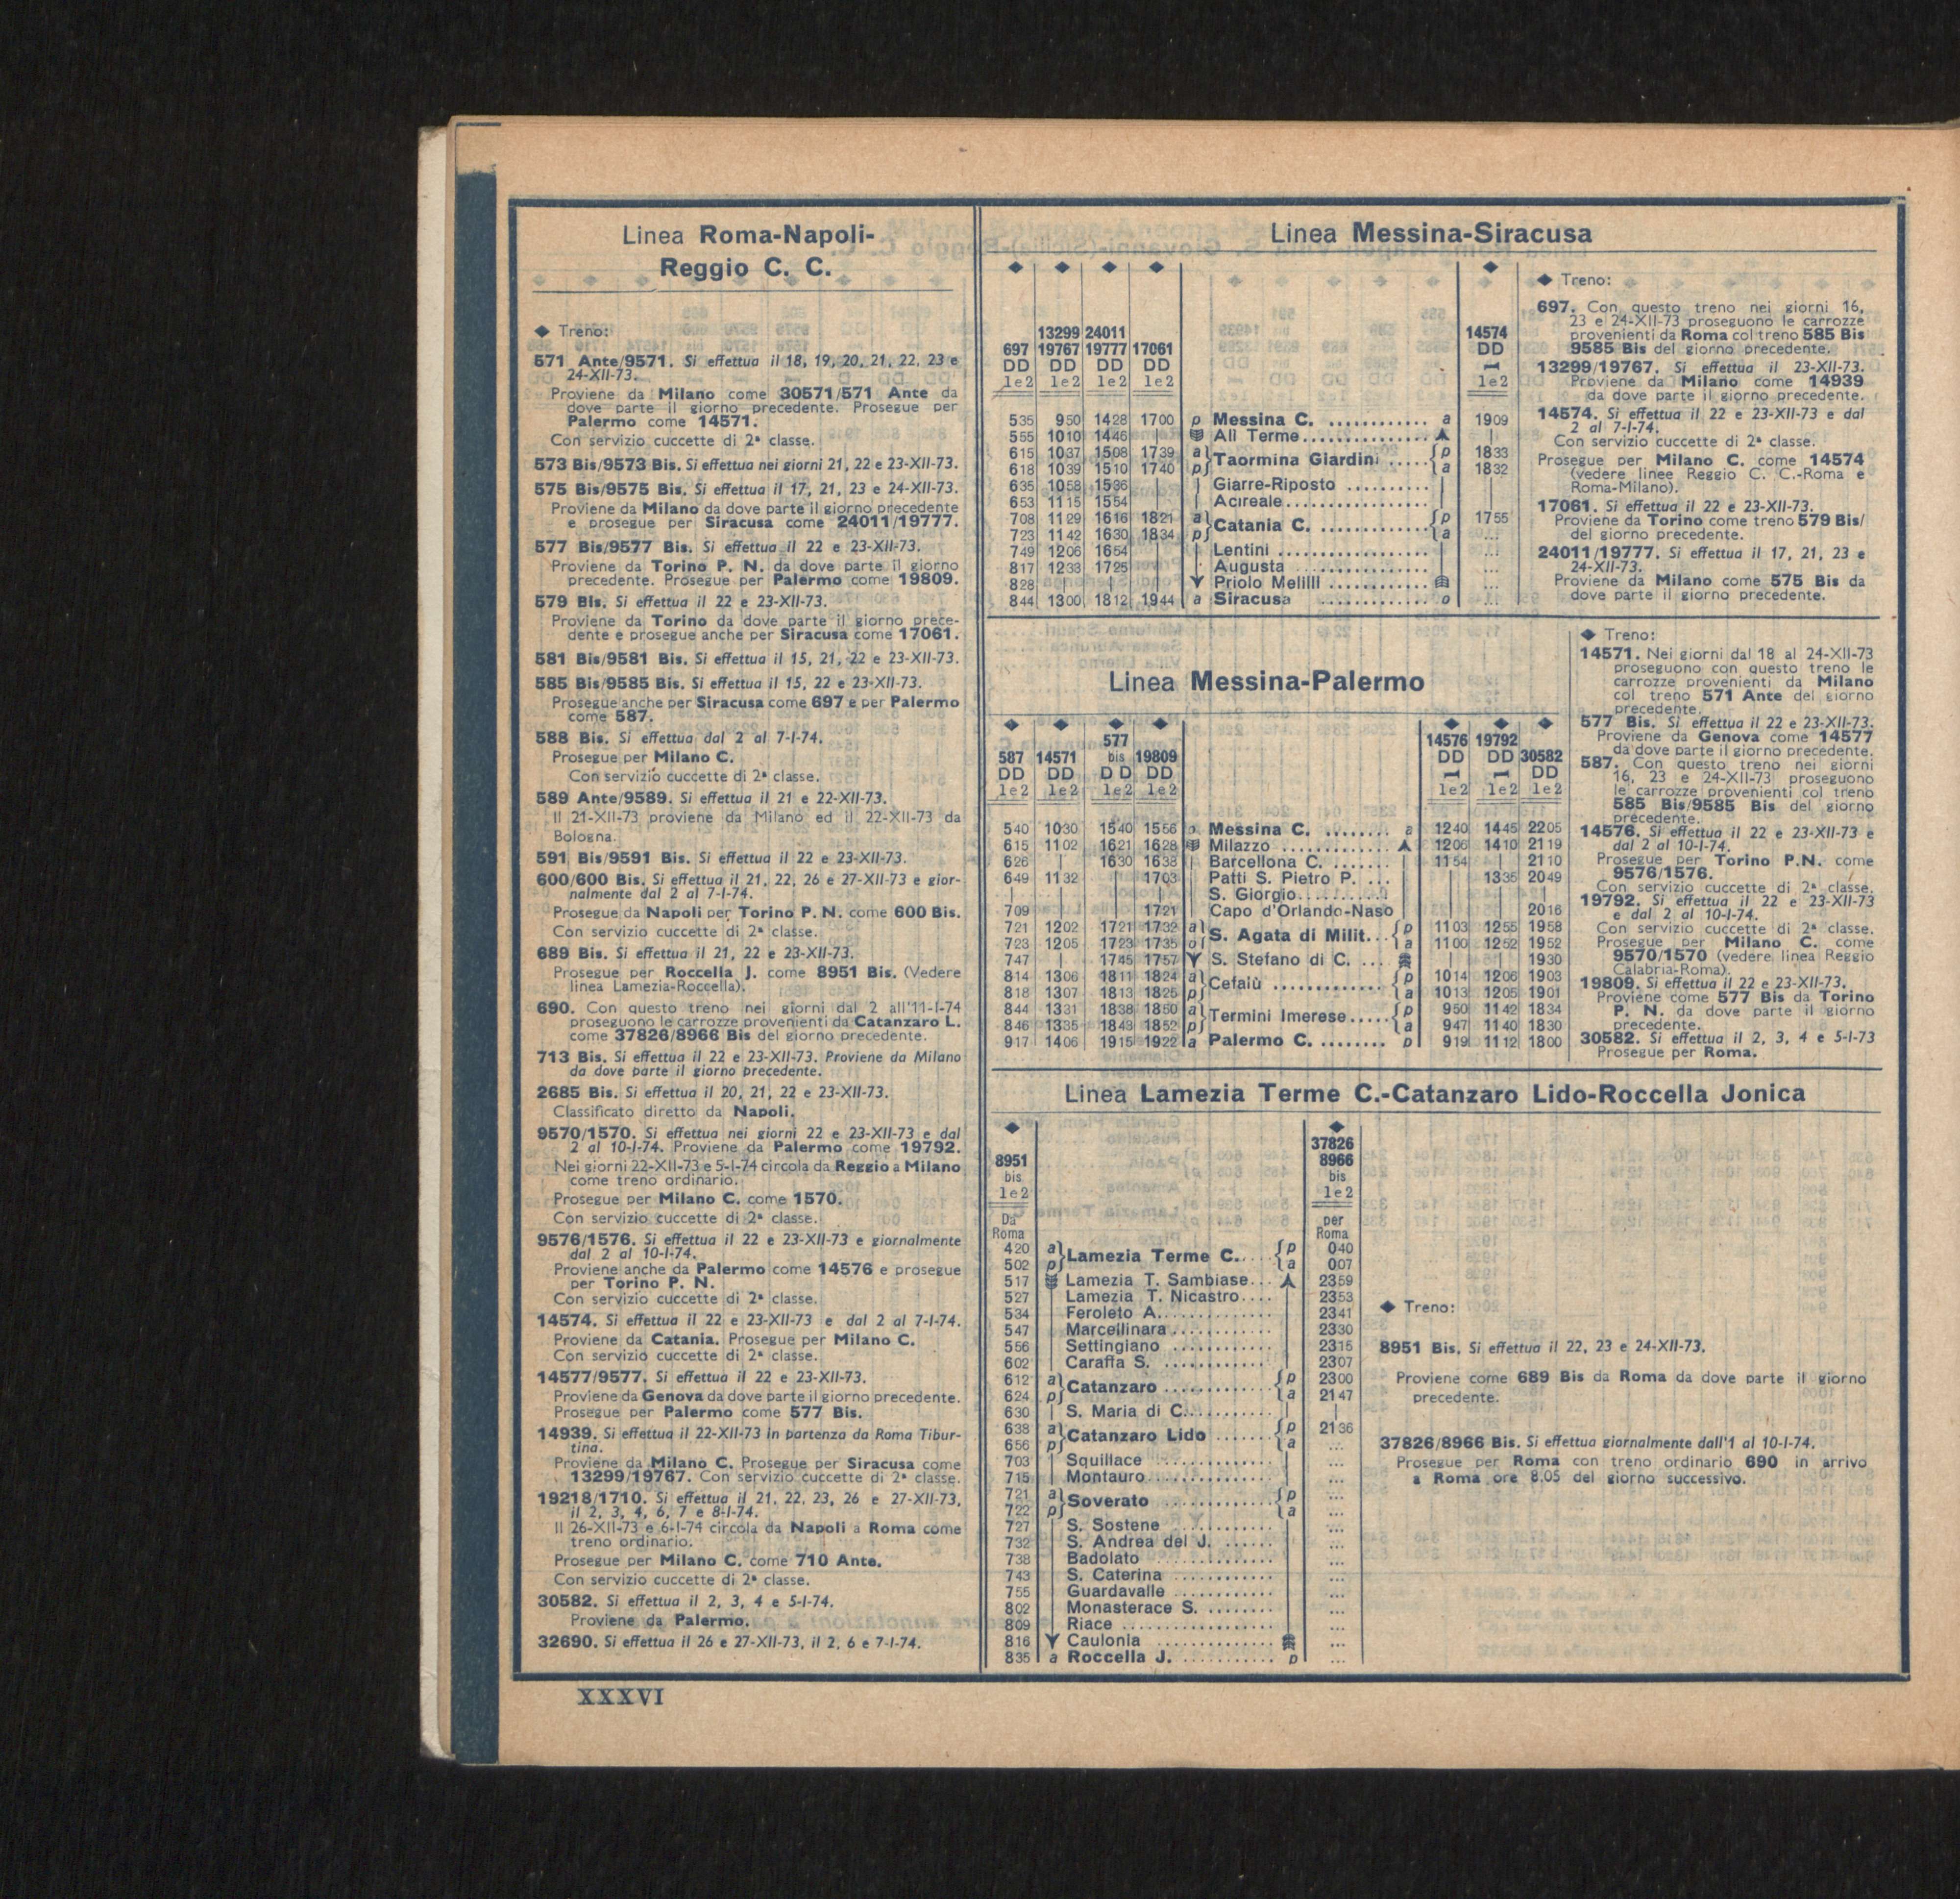 Linea Roma-Napoli-
Reggio C. C.
◆ Treno:
571 Ante/9571. Si effettua il 18, 19, 20, 21, 22, 23 e
24-XII-73.
Proviene da Milano come 30571/571 Ante da
dove parte il giorno precedente. Prosegue per
Palermo come 14571.
Con servizio cuccette di 2ª classe.
573 Bis/9573 Bis. Si effettua nei giorni 21, 22 e 23-XII-73.
575 Bis/9575 Bis. Si effettua il 17, 21, 23 e 24-XII-73.
Proviene da Milano da dove parte il giorno precedente
e prosegue per Siracusa come 24011/19777.
577 Bis/9577 Bis. Si effettua il 22 e 23-XII-73.
Proviene da Torino P. N. da dove parte il giorno
precedente. Prosegue per Palermo come 19809.
579 Bis. Si effettua il 22 e 23-XII-73.
Proviene da Torino da dove parte il giorno prece-
dente e prosegue anche per Siracusa come 17061.
581 Bis/9581 Bis. Si effettua il 15, 21, 22 e 23-XII-73.
585 Bis/9585 Bis. Si effettua il 15, 22 e 23-XII-73.
Prosegue anche per Siracusa come 697 e per Palermo
come 587.
588 Bis. Si effettua dal 2 al 7-I-74.
Prosegue per Milano C.
Con servizio cuccette di 2ª classe.
589 Ante/9589. Si effettua il 21 e 22-XII-73.
Il 21-XII-73 proviene da Milano ed il 22-XII-73 da
Bologna.
591 Bis/9591 Bis. Si effettua il 22 e 23-XII-73.
600/600 Bis. Si effettua il 21, 22, 26 e 27-XII-73 e gior-
nalmente dal 2 al 7-I-74.
Prosegue da Napoli per Torino P. N. come 600 Bis.
Con servizio cuccette di 2ª classe.
689 Bis. Si effettua il 21, 22 e 23-XII-73.
Prosegue per Roccella J. come 8951 Bis. (Vedere
linea Lamezia-Roccella).
690. Con questo treno nei giorni dal 2 all'11-I-74
proseguono le carrozze provenienti da Catanzaro L.
come 37826/8966 Bis del giorno precedente.
713 Bis. Si effettua il 22 e 23-XII-73. Proviene da Milano
da dove parte il giorno precedente.
2685 Bis. Si effettua il 20, 21, 22 e 23-XII-73.
Classificato diretto da Napoli.
9570/1570. Si effettua nei giorni 22 e 23-XII-73 e dal
2 al 10-I-74. Proviene da Palermo come 19792.
Nei giorni 22-XII-73 e 5-I-74 circola da Reggio a Milano
come treno ordinario.
Prosegue per Milano C. come 1570.
Con servizio cuccette di 2ª classe.
9576/1576. Si effettua il 22 e 23-XII-73 e giornalmente
dal 2 al 10-I-74.
Proviene anche da Palermo come 14576 e prosegue
per Torino P. N.
Con servizio cuccette di 2ª classe.
14574. Si effettua il 22 e 23-XII-73 e dal 2 al 7-I-74.
Proviene da Catania. Prosegue per Milano C.
Con servizio cuccette di 2ª classe.
14577/9577. Si effettua il 22 e 23-XII-73.
Proviene da Genova da dove parte il giorno precedente.
Prosegue per Palermo come 577 Bis.
14939. Si effettua il 22-XII-73 in partenza da Roma Tibur-
tina.
Proviene da Milano C. Prosegue per Siracusa come
13299/19767. Con servizio cuccette di 2ª classe.
19218/1710. Si effettua il 21, 22, 23, 26 e 27-XII-73,
il 2, 3, 4, 6, 7 e 8-I-74.
Il 26-XII-73 e 6-I-74 circola da Napoli a Roma come
treno ordinario.
Prosegue per Milano C. come 710 Ante.
Con servizio cuccette di 2ª classe.
30582. Si effettua il 2, 3, 4 e 5-I-74.
Proviene da Palermo.
32690. Si effettua il 26 e 27-XII-73, il 2, 6 e 7-I-74.
XXXVI
Linea Messina-Siracusa
◆ ◆ ◆ ◆ ◆
13299 24011 14574
697 19767 19777 17061 DD
DD DD DD DD
1e2 1e2 1e2 1e2 1e2
535 950 1428 1700 p Messina C. ............ a 1909
555 1010 1446 | Alì Terme............... |
615 1037 1508 1739 a Taormina Giardini ..... p 1833
618 1039 1510 1740 p a 1832
635 1058 1536 | Giarre-Riposto .......... |
653 1115 1554 | Acireale................. |
708 1129 1616 1821 a Catania C. ............. p 1755
723 1142 1630 1834 p a ...
749 1206 1654 | Lentini .................. ...
817 1233 1725 | Augusta .................. ...
828 | | | Priolo Melilli ............ ...
844 1300 1812 1944 a Siracusa ............. o ...
◆ Treno:
697. Con questo treno nei giorni 16,
23 e 24-XII-73 proseguono le carrozze
provenienti da Roma col treno 585 Bis
9585 Bis del giorno precedente.
13299/19767. Si effettua il 23-XII-73.
Proviene da Milano come 14939
da dove parte il giorno precedente.
14574. Si effettua il 22 e 23-XII-73 e dal
2 al 7-I-74.
Con servizio cuccette di 2ª classe.
Prosegue per Milano C. come 14574
(vedere linee Reggio C. C.-Roma e
Roma-Milano).
17061. Si effettua il 22 e 23-XII-73.
Proviene da Torino come treno 579 Bis/
del giorno precedente.
24011/19777. Si effettua il 17, 21, 23 e
24-XII-73.
Proviene da Milano come 575 Bis da
dove parte il giorno precedente.
Linea Messina-Palermo
◆ ◆ ◆ ◆ ◆ ◆ ◆
577 14576 19792
587 14571 bis 19809 DD DD 30582
DD DD DD DD DD
1e2 1e2 1e2 1e2 1e2 1e2 1e2
540 1030 1540 1556 Messina C. ........ a 1240 1445 2205
615 1102 1621 1628 Milazzo ............. 1206 1410 2119
626 | 1630 1638 Barcellona C. ....... 1154 | 2110
649 1132 | 1703 Patti S. Pietro P. ... | 1335 2049
| | | | S. Giorgio........... | | |
709 | | 1721 Capo d'Orlando-Naso | | 2016
721 1202 1721 1732 a S. Agata di Milit... p 1103 1255 1958
723 1205 1723 1735 o a 1100 1252 1952
747 | 1745 1757 S. Stefano di C. .... | | 1930
814 1306 1811 1824 a Cefalù ............. p 1014 1206 1903
818 1307 1813 1825 p a 1013 1205 1901
844 1331 1838 1850 a Termini Imerese..... p 950 1142 1834
846 1335 1843 1852 p a 947 1140 1830
917 1406 1915 1922 a Palermo C. ........ p 919 1112 1800
◆ Treno:
14571. Nei giorni dal 18 al 24-XII-73
proseguono con questo treno le
carrozze provenienti da Milano
col treno 571 Ante del giorno
precedente.
577 Bis. Si effettua il 22 e 23-XII-73.
Proviene da Genova come 14577
da dove parte il giorno precedente.
587. Con questo treno nei giorni
16, 23 e 24-XII-73 proseguono
le carrozze provenienti col treno
585 Bis/9585 Bis del giorno
precedente.
14576. Si effettua il 22 e 23-XII-73 e
dal 2 al 10-I-74.
Prosegue per Torino P.N. come
9576/1576.
Con servizio cuccette di 2ª classe.
19792. Si effettua il 22 e 23-XII-73
e dal 2 al 10-I-74.
Con servizio cuccette di 2ª classe.
Prosegue per Milano C. come
9570/1570 (vedere linea Reggio
Calabria-Roma).
19809. Si effettua il 22 e 23-XII-73.
Proviene come 577 Bis da Torino
P. N. da dove parte il giorno
precedente.
30582. Si effettua il 2, 3, 4 e 5-I-73
Prosegue per Roma.
Linea Lamezia Terme C.-Catanzaro Lido-Roccella Jonica
◆ ◆
37826
8951 8966
bis bis
1e2 1e2
Da per
Roma Roma
420 a Lamezia Terme C.... p 040
502 p a 007
517 Lamezia T. Sambiase... 2359
527 Lamezia T. Nicastro.... 2353
534 Feroleto A............. 2341
547 Marcellinara ........... 2330
556 Settingiano ............ 2315
602 Caraffa S. ............ 2307
612 a Catanzaro ............. p 2300
624 p a 2147
630 S. Maria di C........... |
638 a Catanzaro Lido ....... p 2136
656 p a ...
703 Squillace .............. ...
715 Montauro.............. ...
721 a Soverato ............. p ...
722 p a ...
727 S. Sostene ............ ...
732 S. Andrea del J. ...... ...
738 Badolato .............. ...
743 S. Caterina ............ ...
755 Guardavalle ............ ...
802 Monasterace S. ........ ...
809 Riace .................. ...
816 Caulonia .............. ...
835 a Roccella J. ........... p ...
◆ Treno:
8951 Bis. Si effettua il 22, 23 e 24-XII-73.
Proviene come 689 Bis da Roma da dove parte il giorno
precedente.
37826/8966 Bis. Si effettua giornalmente dall'1 al 10-I-74.
Prosegue per Roma con treno ordinario 690 in arrivo
a Roma ore 8.05 del giorno successivo.